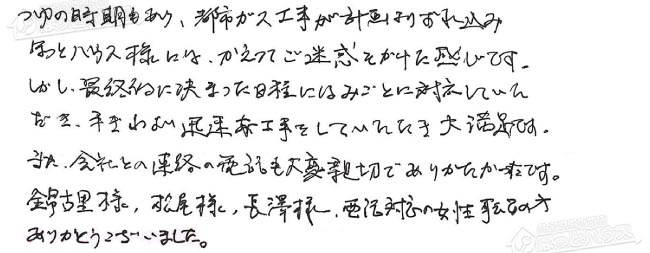 つゆの時期もあり、都市ガス工事が計画よりずれ込み
ほっとハウス様には、かえってご迷惑をかけた感じです。
しかし、最終的に決まった日程にはみごとに対応していた
だき、手ぎわよい迅速な工事をしていただき大満足です。
また、会社との連絡の電話も大変親切でありがたかったです。
錦古里様、松尾様、長澤様、電話対応の女性の方
ありがとうございました。